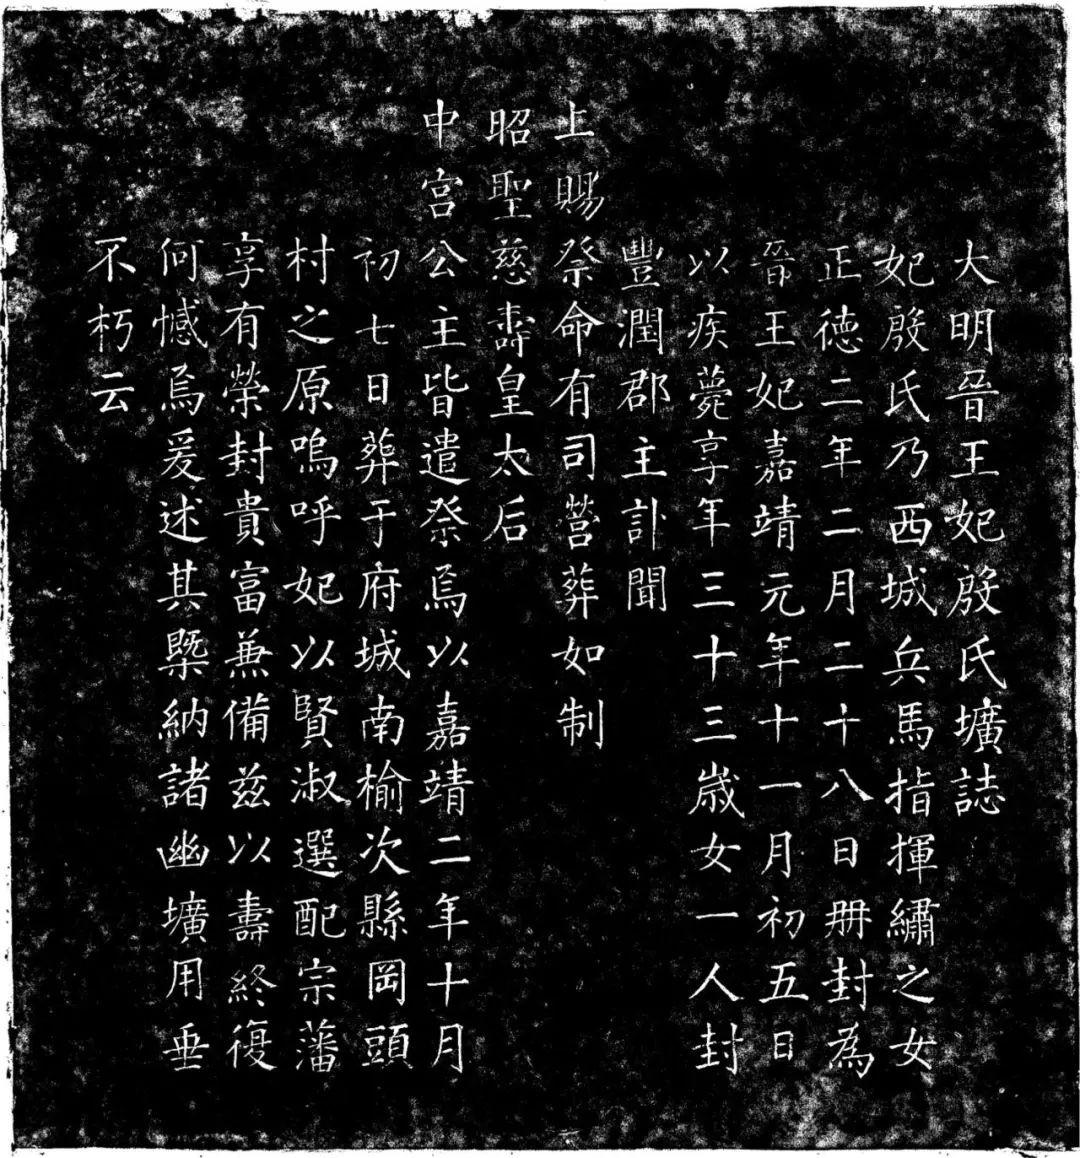 大明晉王妃殷氏壙誌
妃殷氏乃西城兵馬指揮繡之女
正德二年二月二十八日冊封為
晉王妃嘉靖元年十一月初五日
以疾薨享年三十三歲女一人封
豐潤郡主訃聞
上賜祭命有司營葬如制
昭聖慈壽皇太后
中宮公主皆遣祭焉以嘉靖二年十月
初七日葬于府城南榆次縣岡頭
村之原嗚呼妃以賢淑選配宗藩
享有榮封貴富兼備茲以壽終復
何憾焉爰述其槩納諸幽壙用垂
不朽云